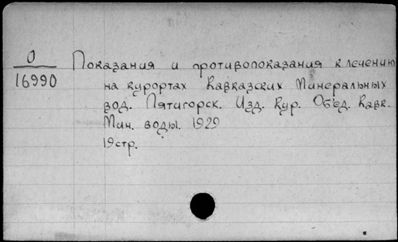 О
16990
Показания и противопоказания к лечению
на курортах Кавказских Минеральных
вод. Пятигорск. Изд. Кур. Объед. Кавк.
Мин. воды. 1929
19стр.